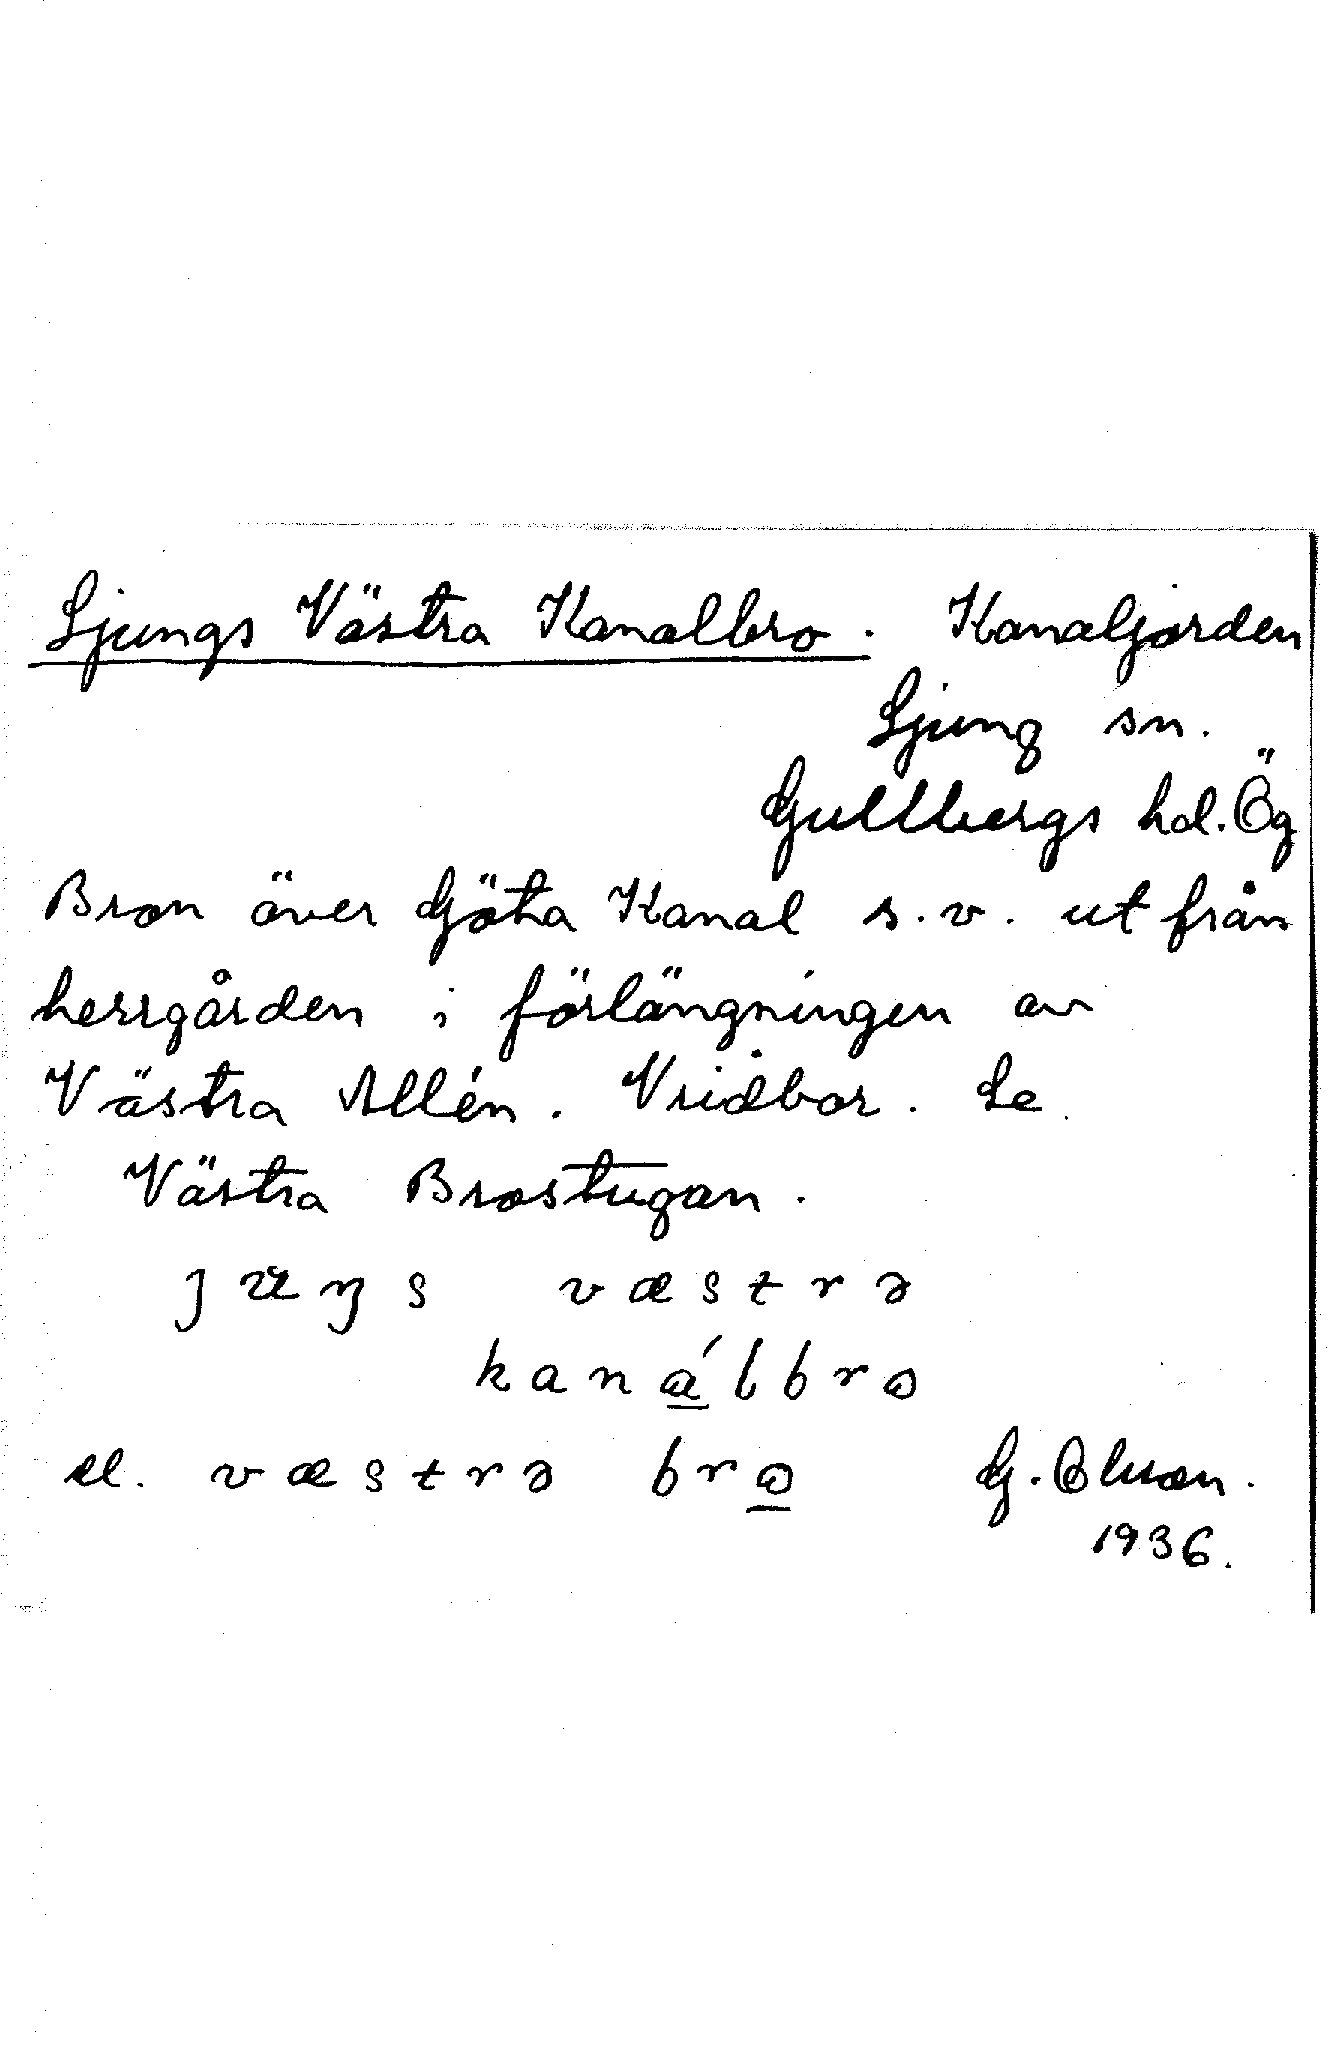 Ljungs Västra Kanalbro. Kanaljorden
Ljung sn.
Gullbergs hd. Ög
Bron över Göta Kanal s.v. ut från
herrgården i förlängningen av
Västra Allén. Vridbar. Se
Västra Brostugan.
juŋs væstrə
kanálbro
el. væstrə bro G. Olsson.
1936.